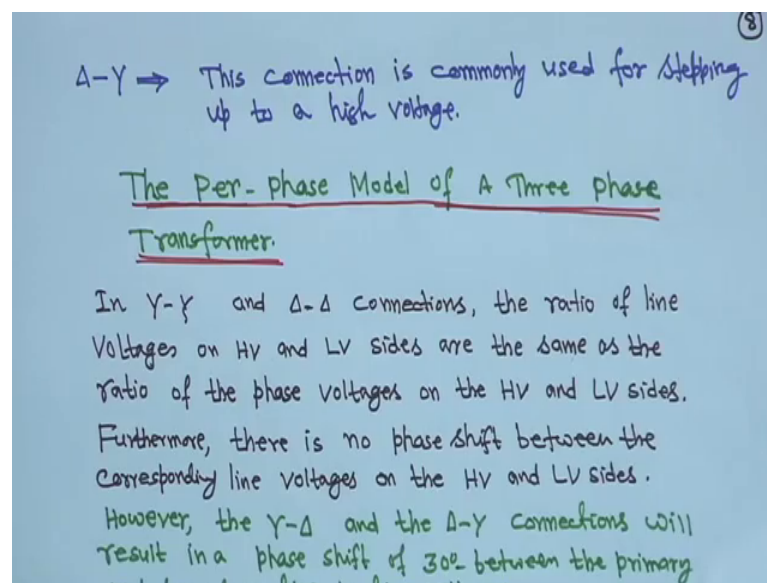 8
Δ-Y → This connection is commonly used for stepping
up to a high voltage.
The Per-phase Model of A Three phase
Transformer.
In Y-Y and Δ-Δ connections, the ratio of line
Voltages on HV and LV sides are the same as the
ratio of the phase voltages on the HV and LV sides.
Furthermore, there is no phase shift between the
corresponding line voltages on the HV and LV sides.
However, the Y-Δ and the Δ-Y connections will
result in a phase shift of 30° between the primary